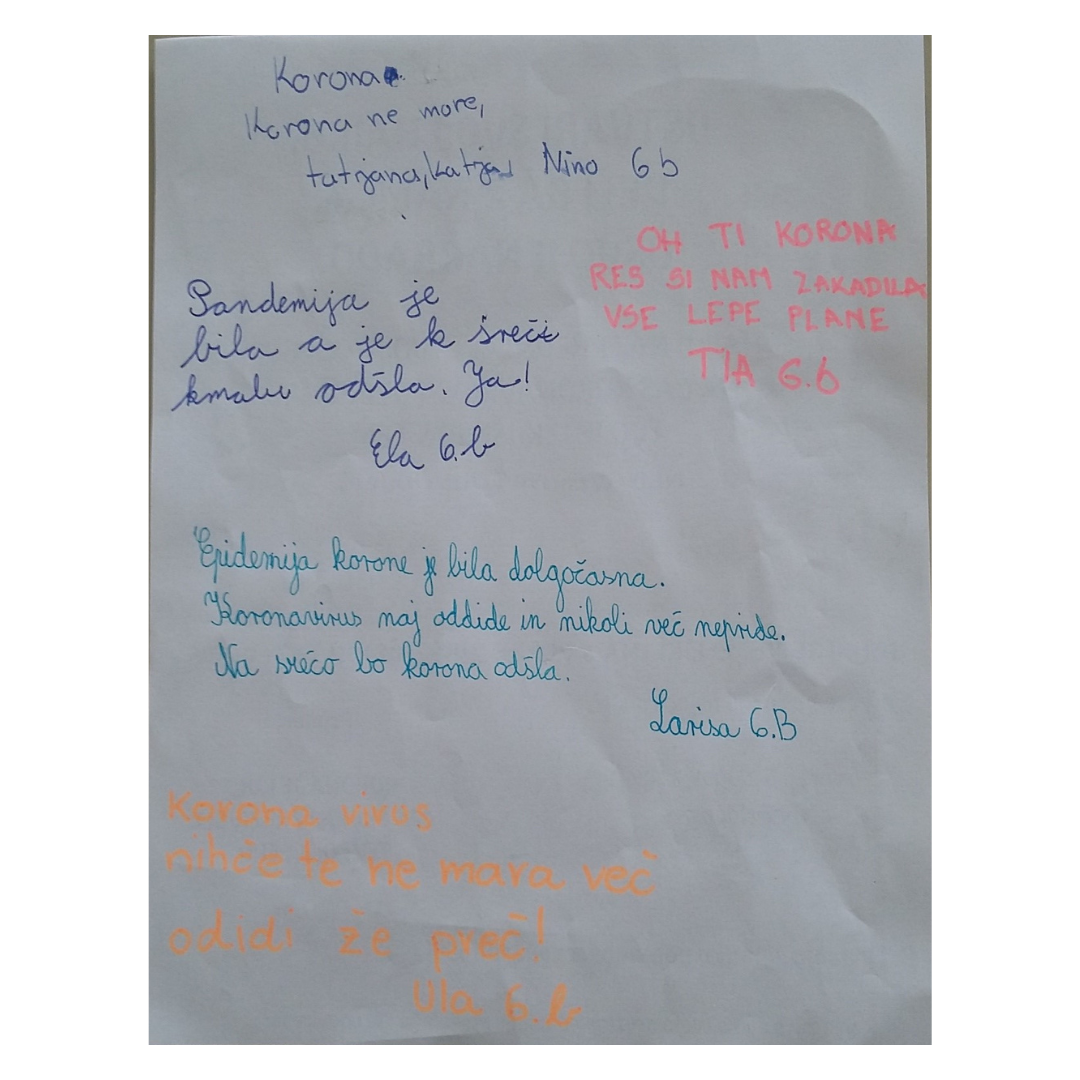 Korona
Korona ne more,
tatjana, katja, Nino 6 b
OH TI KORONA
RES SI NAM ZAKADILA
VSE LEPE PLANE
TIA 6.b
Pandemija je
bila a je k sreči
kmalu odšla. Ya!
Ela 6.b
Epidemija korone je bila dolgočasna.
Koronavirus naj oddide in nikoli več nepride.
Na srečo bo korona odšla.
Larisa 6.B
Korona virus
nihče te ne mara več
odidi že preč!
Ula 6.b